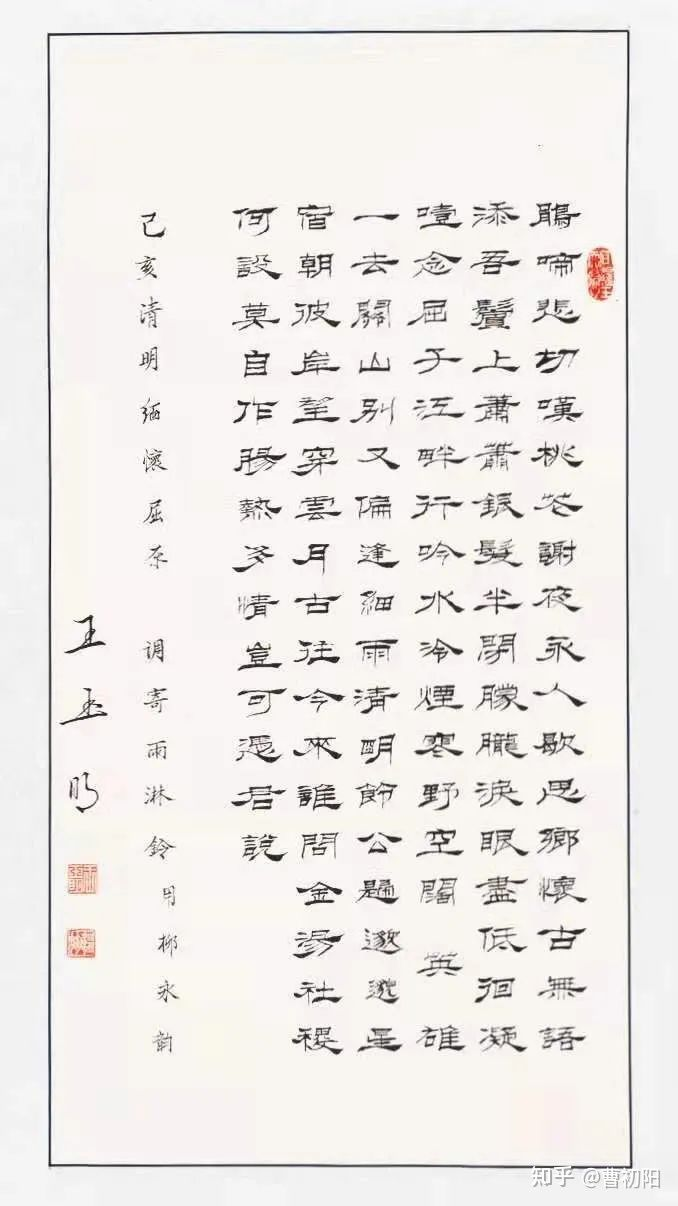 鵑啼悲切嘆桃花謝夜永人歇思鄉懷古無語
添吾鬢上蕭蕭銀髮半閉朦朧淚眼盡低徊凝
噎念屈子江畔行吟水冷煙寒野空闊 英雄
一去關山別又偏逢細雨清明節公星
宿朝彼岸望穿雲月古往今來誰問金湯社稷
何設莫自作腸熱多情豈可憑君說
己亥清明緬懷屈原 调寄雨淋鈴用柳永韵
王玉明
知乎 @曹初阳